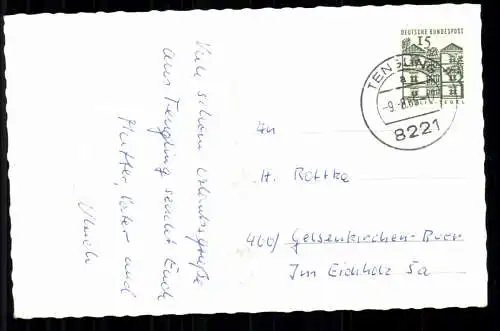 Viele schöne Urlaubsgrüße
aus Tengling sendet Euch
Mutter, Vater und
Ulrich
DEUTSCHE BUNDESPOST
15
TENGLING
-9.-8.65-17
8221
BERLIN-TEGEL
An
H. Rottke
4660/ Gelsenkirchen-Buer
Im Eichholz 5a